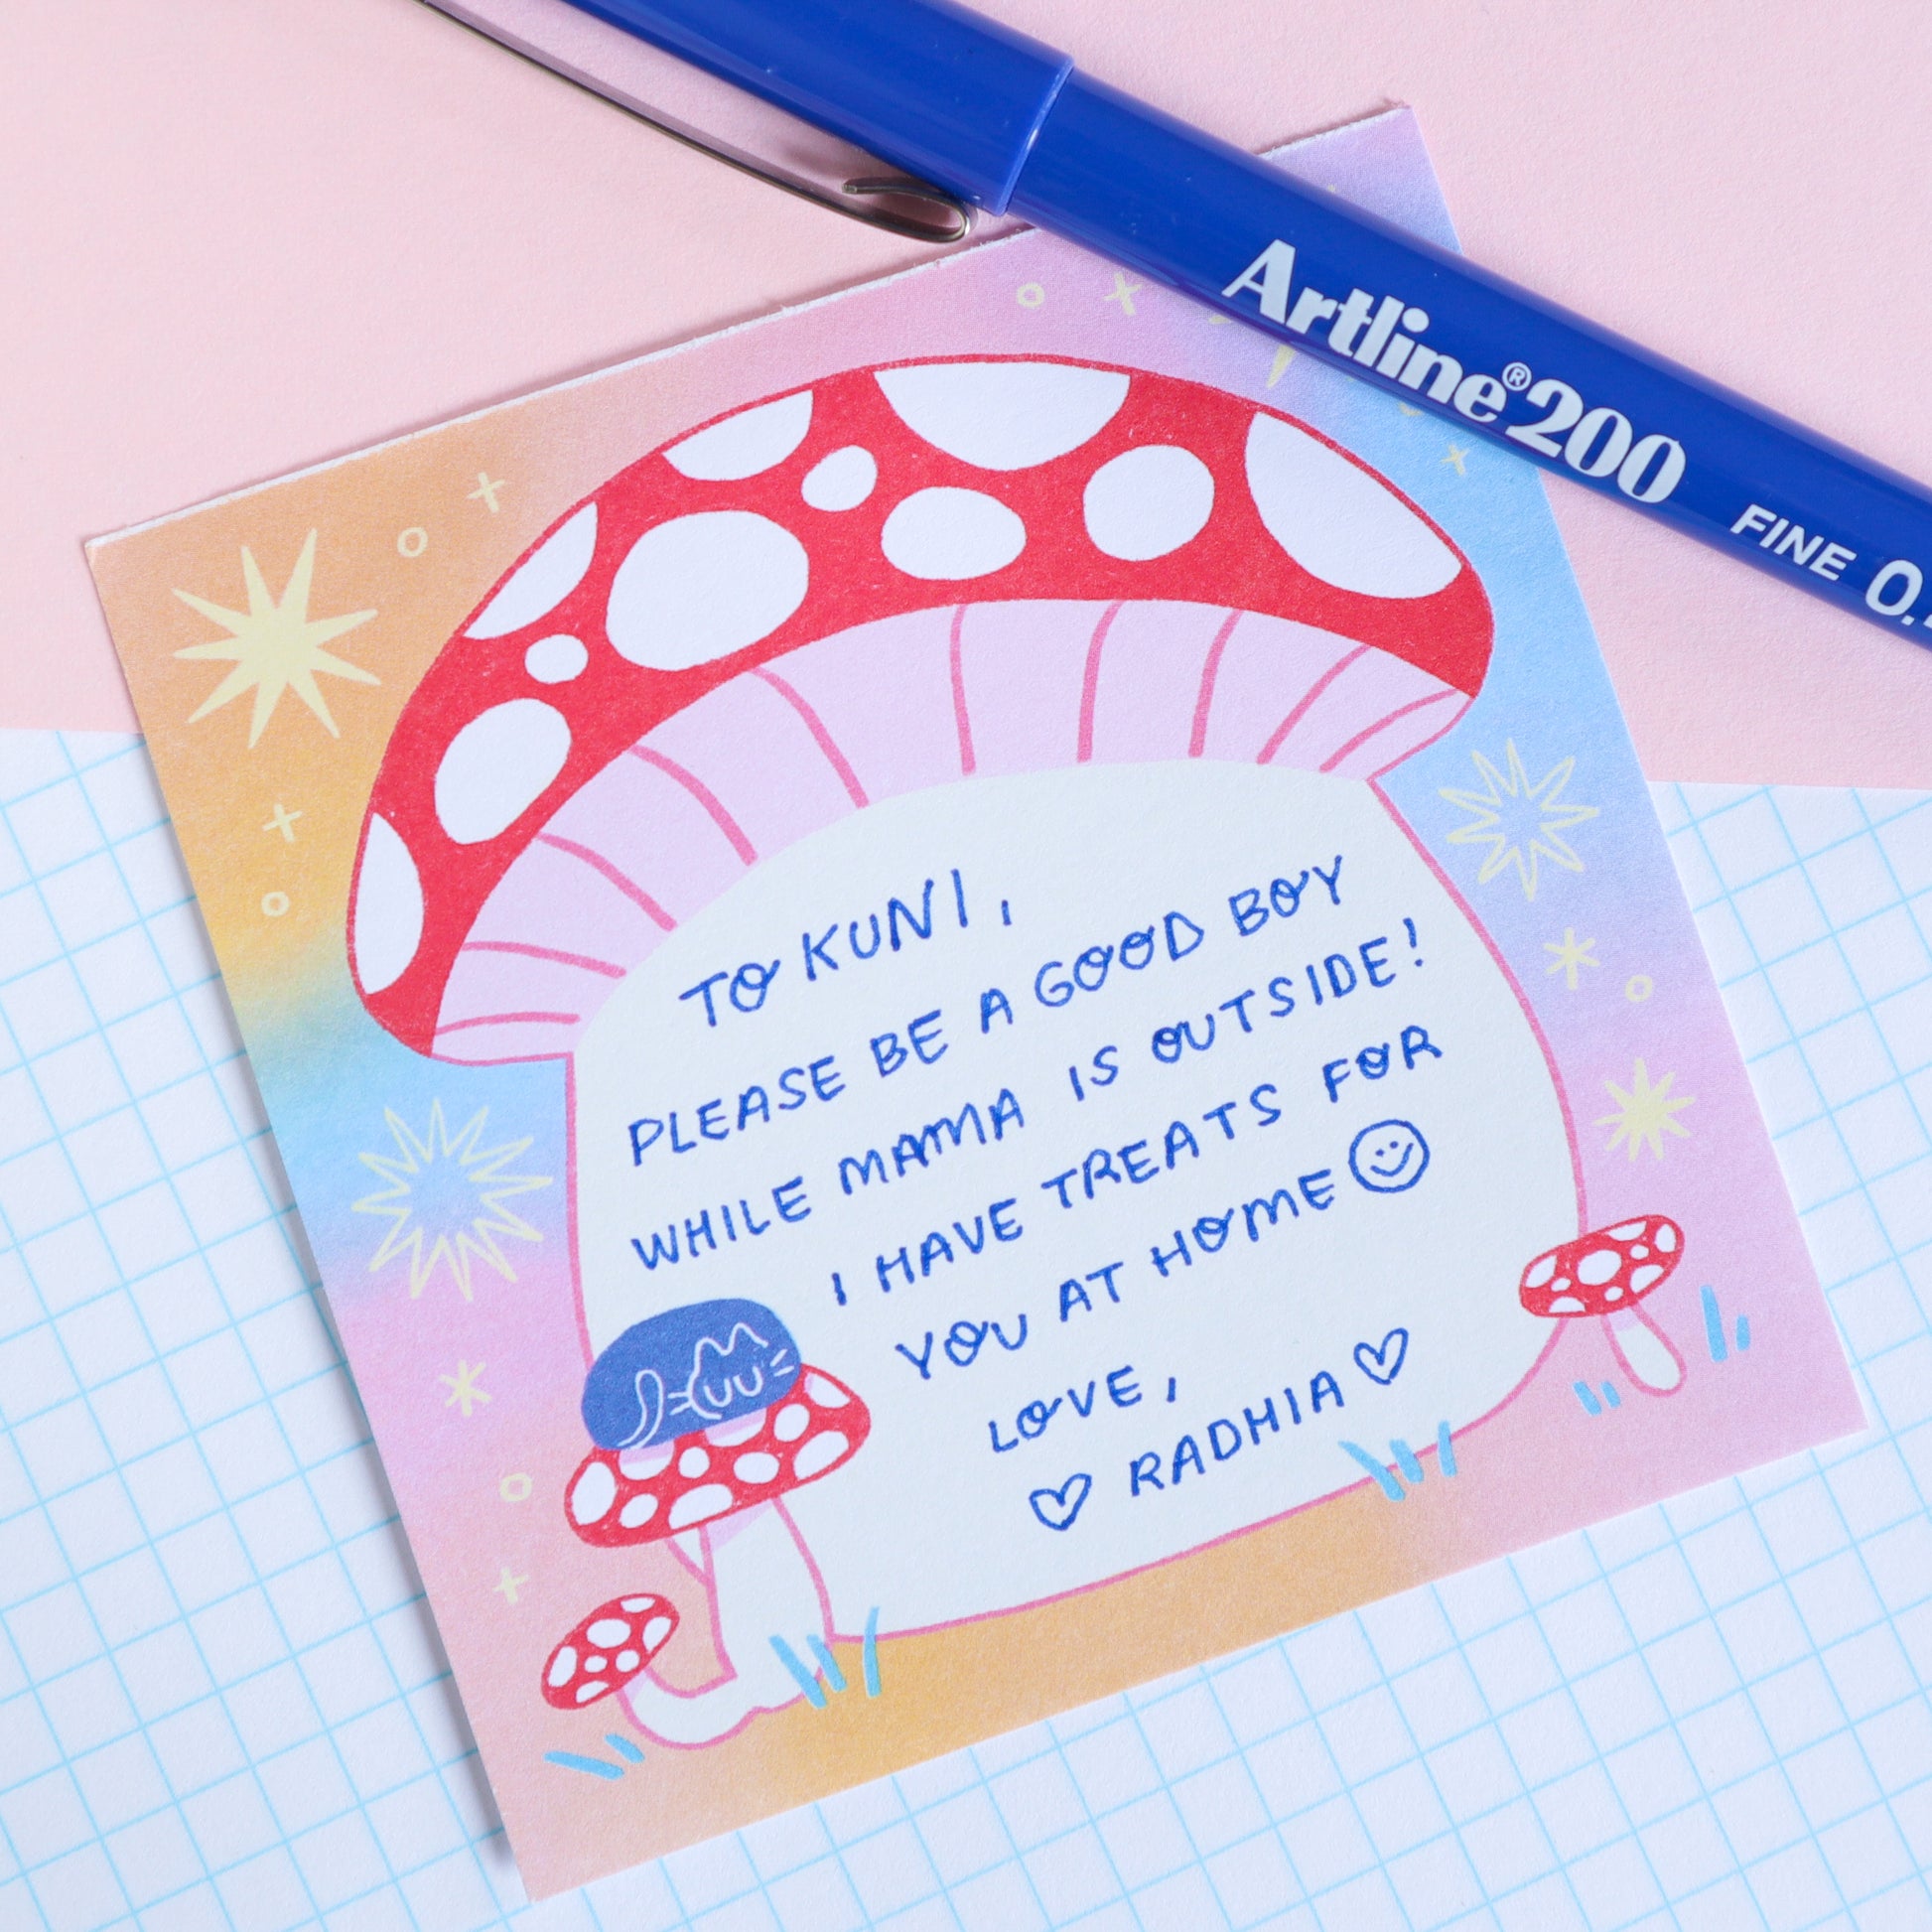 Artline®200
FINE 0.
TO KUNI,
PLEASE BE A GOOD BOY
WHILE MAMA IS OUTSIDE!
I HAVE TREATS FOR
YOU AT HOME
LOVE,
RADHIA